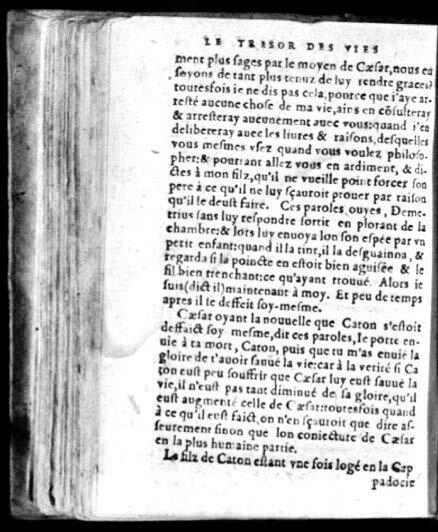 LE TRESOR DES VIES
ment plus sages par le moyen de Cæsar, nous en
soyons de tant plus tenuz de luy rendre graces?
toutesfois ie ne dis pas cela, pource que i'aye ar-
resté aucune chose de ma vie, ains en cõsulteray
& arresteray aucunement auec vous: quand i'en
delibereray auec les liures & raisons, desquelles
vous mesmes vsez quand vous voulez philoso-
pher: & pourtant allez vous en ardiment, & di-
ctes à mon filz, qu'il ne vueille point forcer son
pere à ce qu'il ne luy sçauroit prouer par raison
qu'il le deust faire. Ces paroles ouyes, Deme-
trius sans luy respondre sortit en plorant de la
chambre: & lors luy enuoya lon son espée par vn
petit enfant: quand il la tint, il la desguainna, &
regarda si la poincte en estoit bien aguisée & le
fil bien trenchant: ce qu'ayant trouué. Alors ie
suis (dict il) maintenant à moy. Et peu de temps
apres il se deffeit soy-mesme.
Cæsar oyant la nouuelle que Caton s'estoit
deffaict soy mesme, dit ces paroles, Ie porte en-
uie à ta mort, Caton, puis que tu m'as enuié la
gloire de t'auoir sauué la vie: car à la verité si Ca
ton eust peu souffrir que Cæsar luy eust sauué la
vie, il n'eust pas tant diminué de sa gloire, qu'il
eust augmenté celle de Cæsar: toutesfois quand
à ce qu'il eust faict, on n'en sçauroit que dire as-
seurement sinon que lon coniecture de Cæsar
en la plus humaine partie.
Le filz de Caton estant vne fois logé en la Cap
padocie